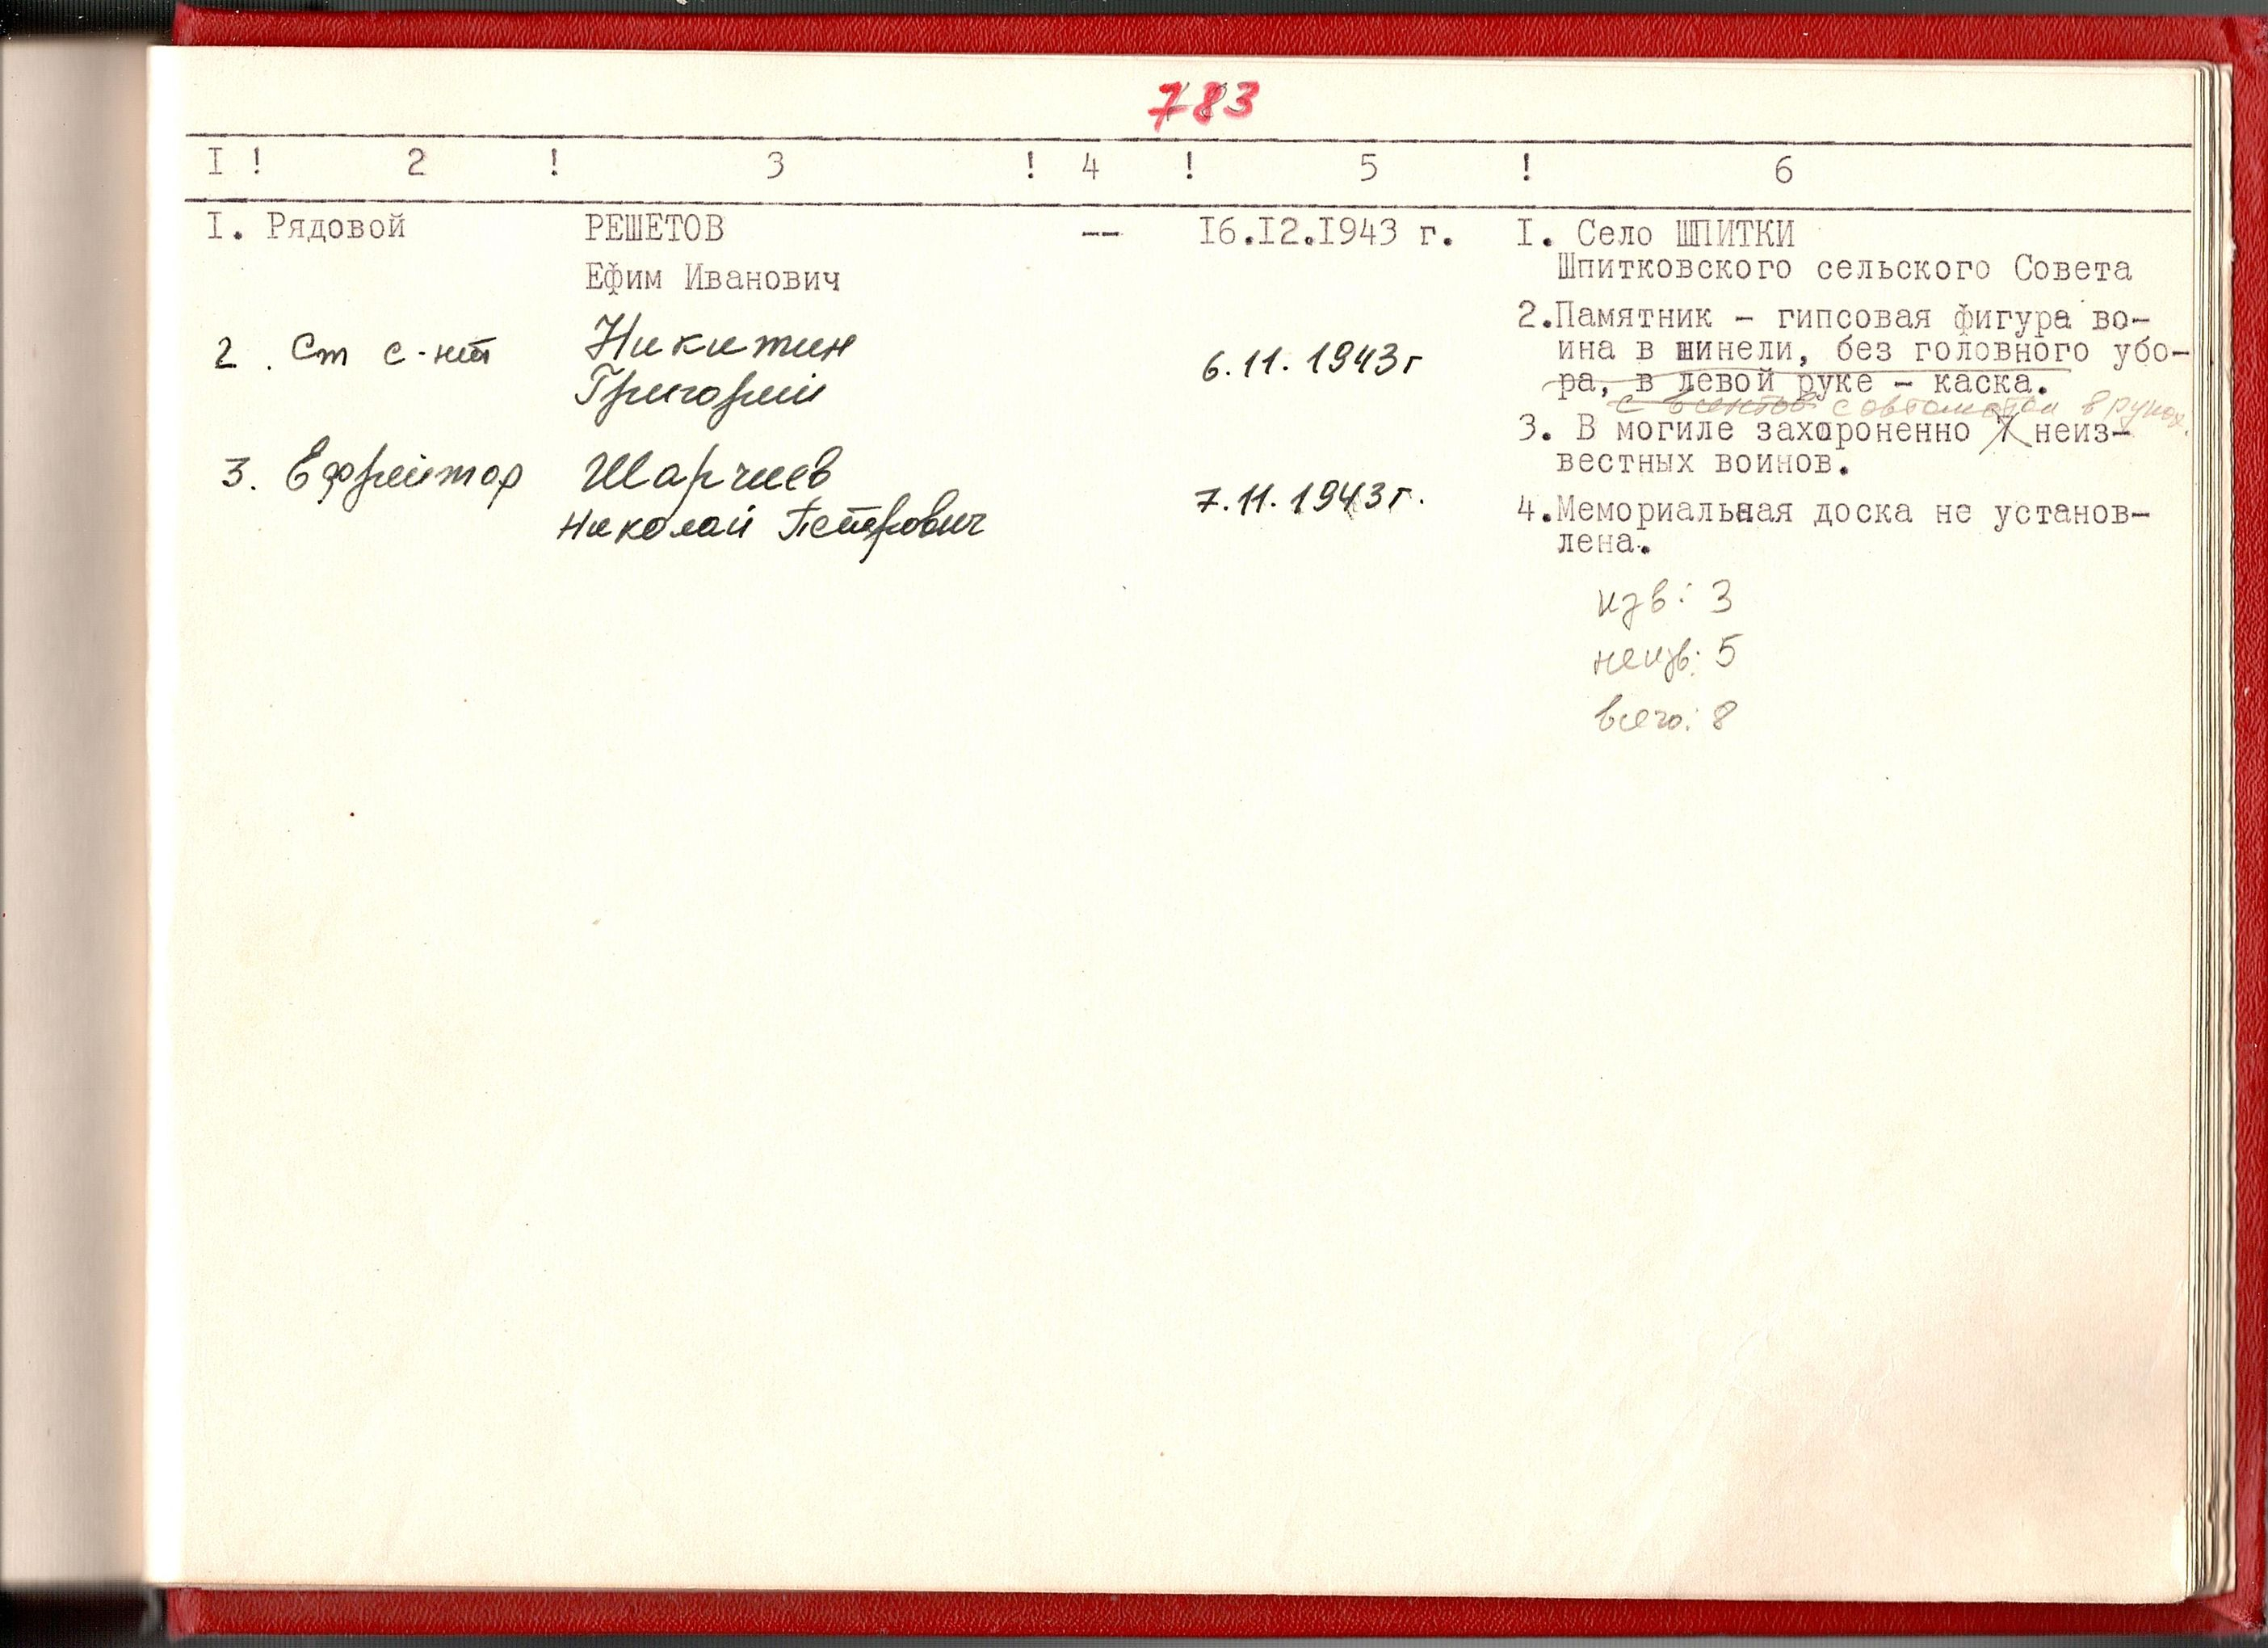 783
I ! 2 ! 3 ! 4 ! 5 ! 6
I. Рядовой РЕШЕТОВ -- I6.I2.I943 г. I. Село ШПИТКИ
Шпитковского сельского Совета
Ефим Иванович
2.Памятник - гипсовая фигура во-
2. Ст с-нт Никитин 6.11.1943г ина в шинели, без головного убо-
Григорий ра, в левой руке - каска.
с автоматом в руках.
3. В могиле захороненно 7 неиз-
3. Ефрейтор Шарчиев вестных воинов.
Николай Петрович 7.11.1943г. 4.Мемориальная доска не установ-
лена.
изв: 3
неизв: 5
всего: 8